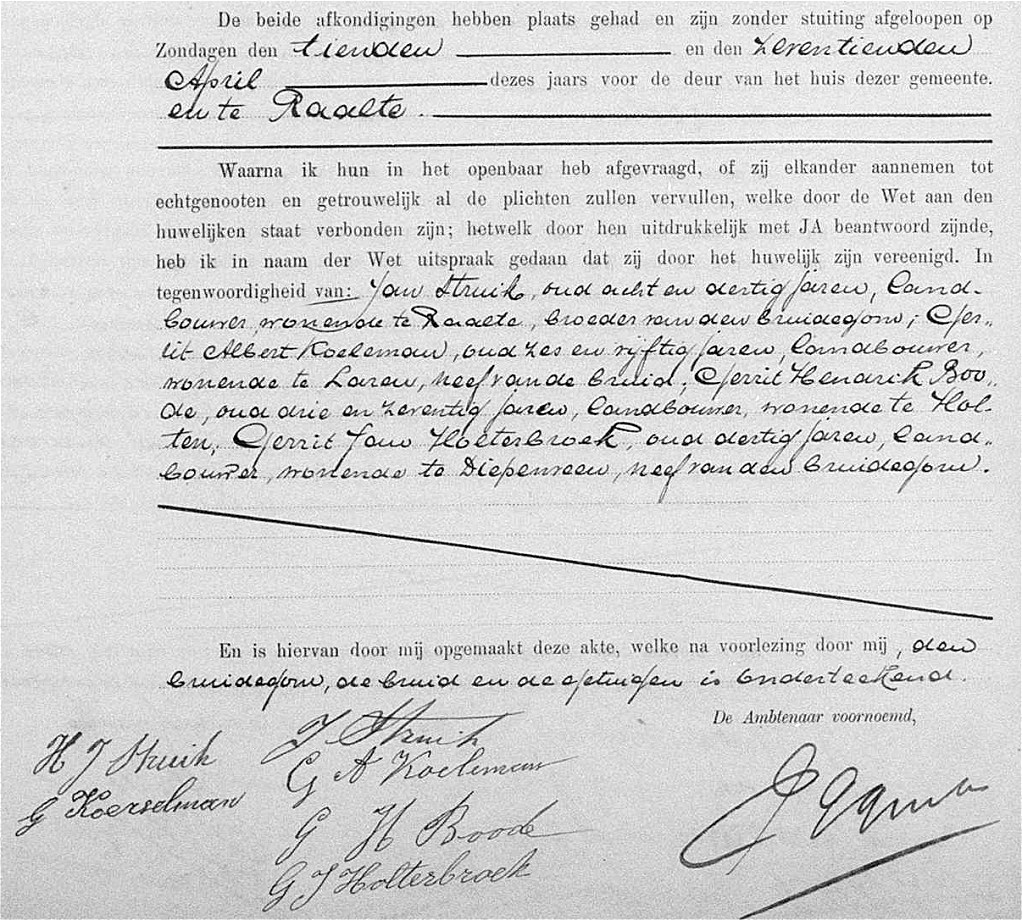 De beide afkondigingen hebben plaats gehad en zijn zonder stuiting afgeloopen op
Zondagen den tienden en den zeventienden
April dezes jaars voor de deur van het huis dezer gemeente.
en te Raalte.
Waarna ik hun in het openbaar heb afgevraagd, of zij elkander aannemen tot
echtgenooten en getrouwelijk al de plichten zullen vervullen, welke door de Wet aan den
huwelijken staat verbonden zijn; hetwelk door hen uitdrukkelijk met JA beantwoord zijnde,
heb ik in naam der Wet uitspraak gedaan dat zij door het huwelijk zijn vereenigd. In
tegenwoordigheid van: Jan Struik, oud acht en dertig jaren, land-
bouwer, wonende te Raalte, broeder van den bruidegom; Ger-
rit Albert Koeleman, oud zes en vijftig jaren, landbouwer,
wonende te Laren, neef van de bruid; Gerrit Hendrik Boo-
de, oud drie en zeventig jaren, landbouwer, wonende te Hol-
ten, Gerrit Jan Holterbroek, oud dertig jaren, land-
bouwer, wonende te Diepenveen, neef van den bruidegom.
En is hiervan door mij opgemaakt deze akte, welke na voorlezing door mij, den
bruidegom, de bruid en de getuigen is onderteekend.
De Ambtenaar voornoemd,
H J Struik
J. Struik
G Koerselman
G A Koeleman
G H Boode
G J Holterbroek